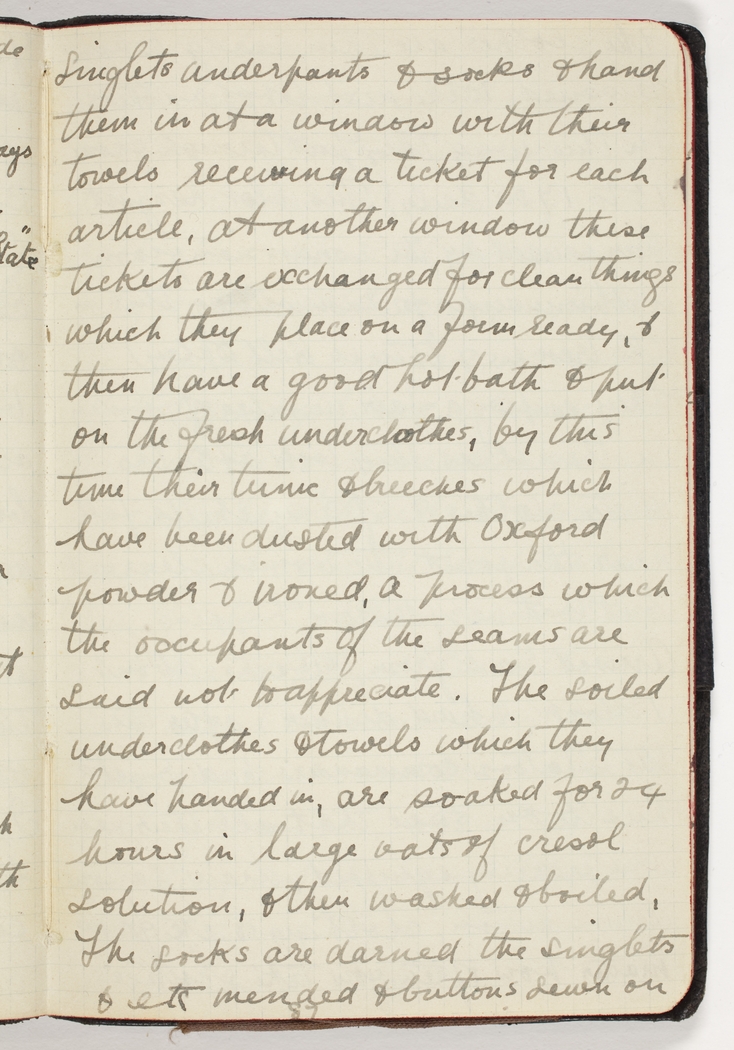 singlets underpants & socks & hand
them in at a window with their
towels receiving a ticket for each
article, at another window these
tickets are exchanged for clean things
which they place on a form ready, &
then have a good hot bath & put
on the fresh underclothes, by this
time their tunic & breeches which
have been dusted with Oxford
powder & ironed, a process which
the occupants of the seams are
said not to appreciate. The soiled
underclothes & towels which they
have handed in, are soaked for 24
hours in large vats of cresol
solution, & then washed & boiled,
The socks are darned the singlets
& etc mended & buttons sewn on
ays
State"
th